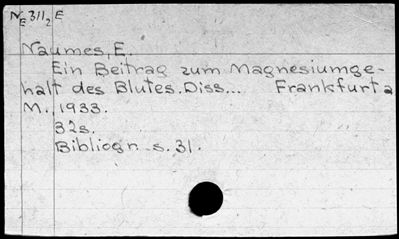 NE 311₂ E
Naumes, E.
Ein Beitrag zum Magnesiumge-
halt des Blutes. Diss... Frankfurt a
M., 1933.
32s.
Bibliogr. s. 31.